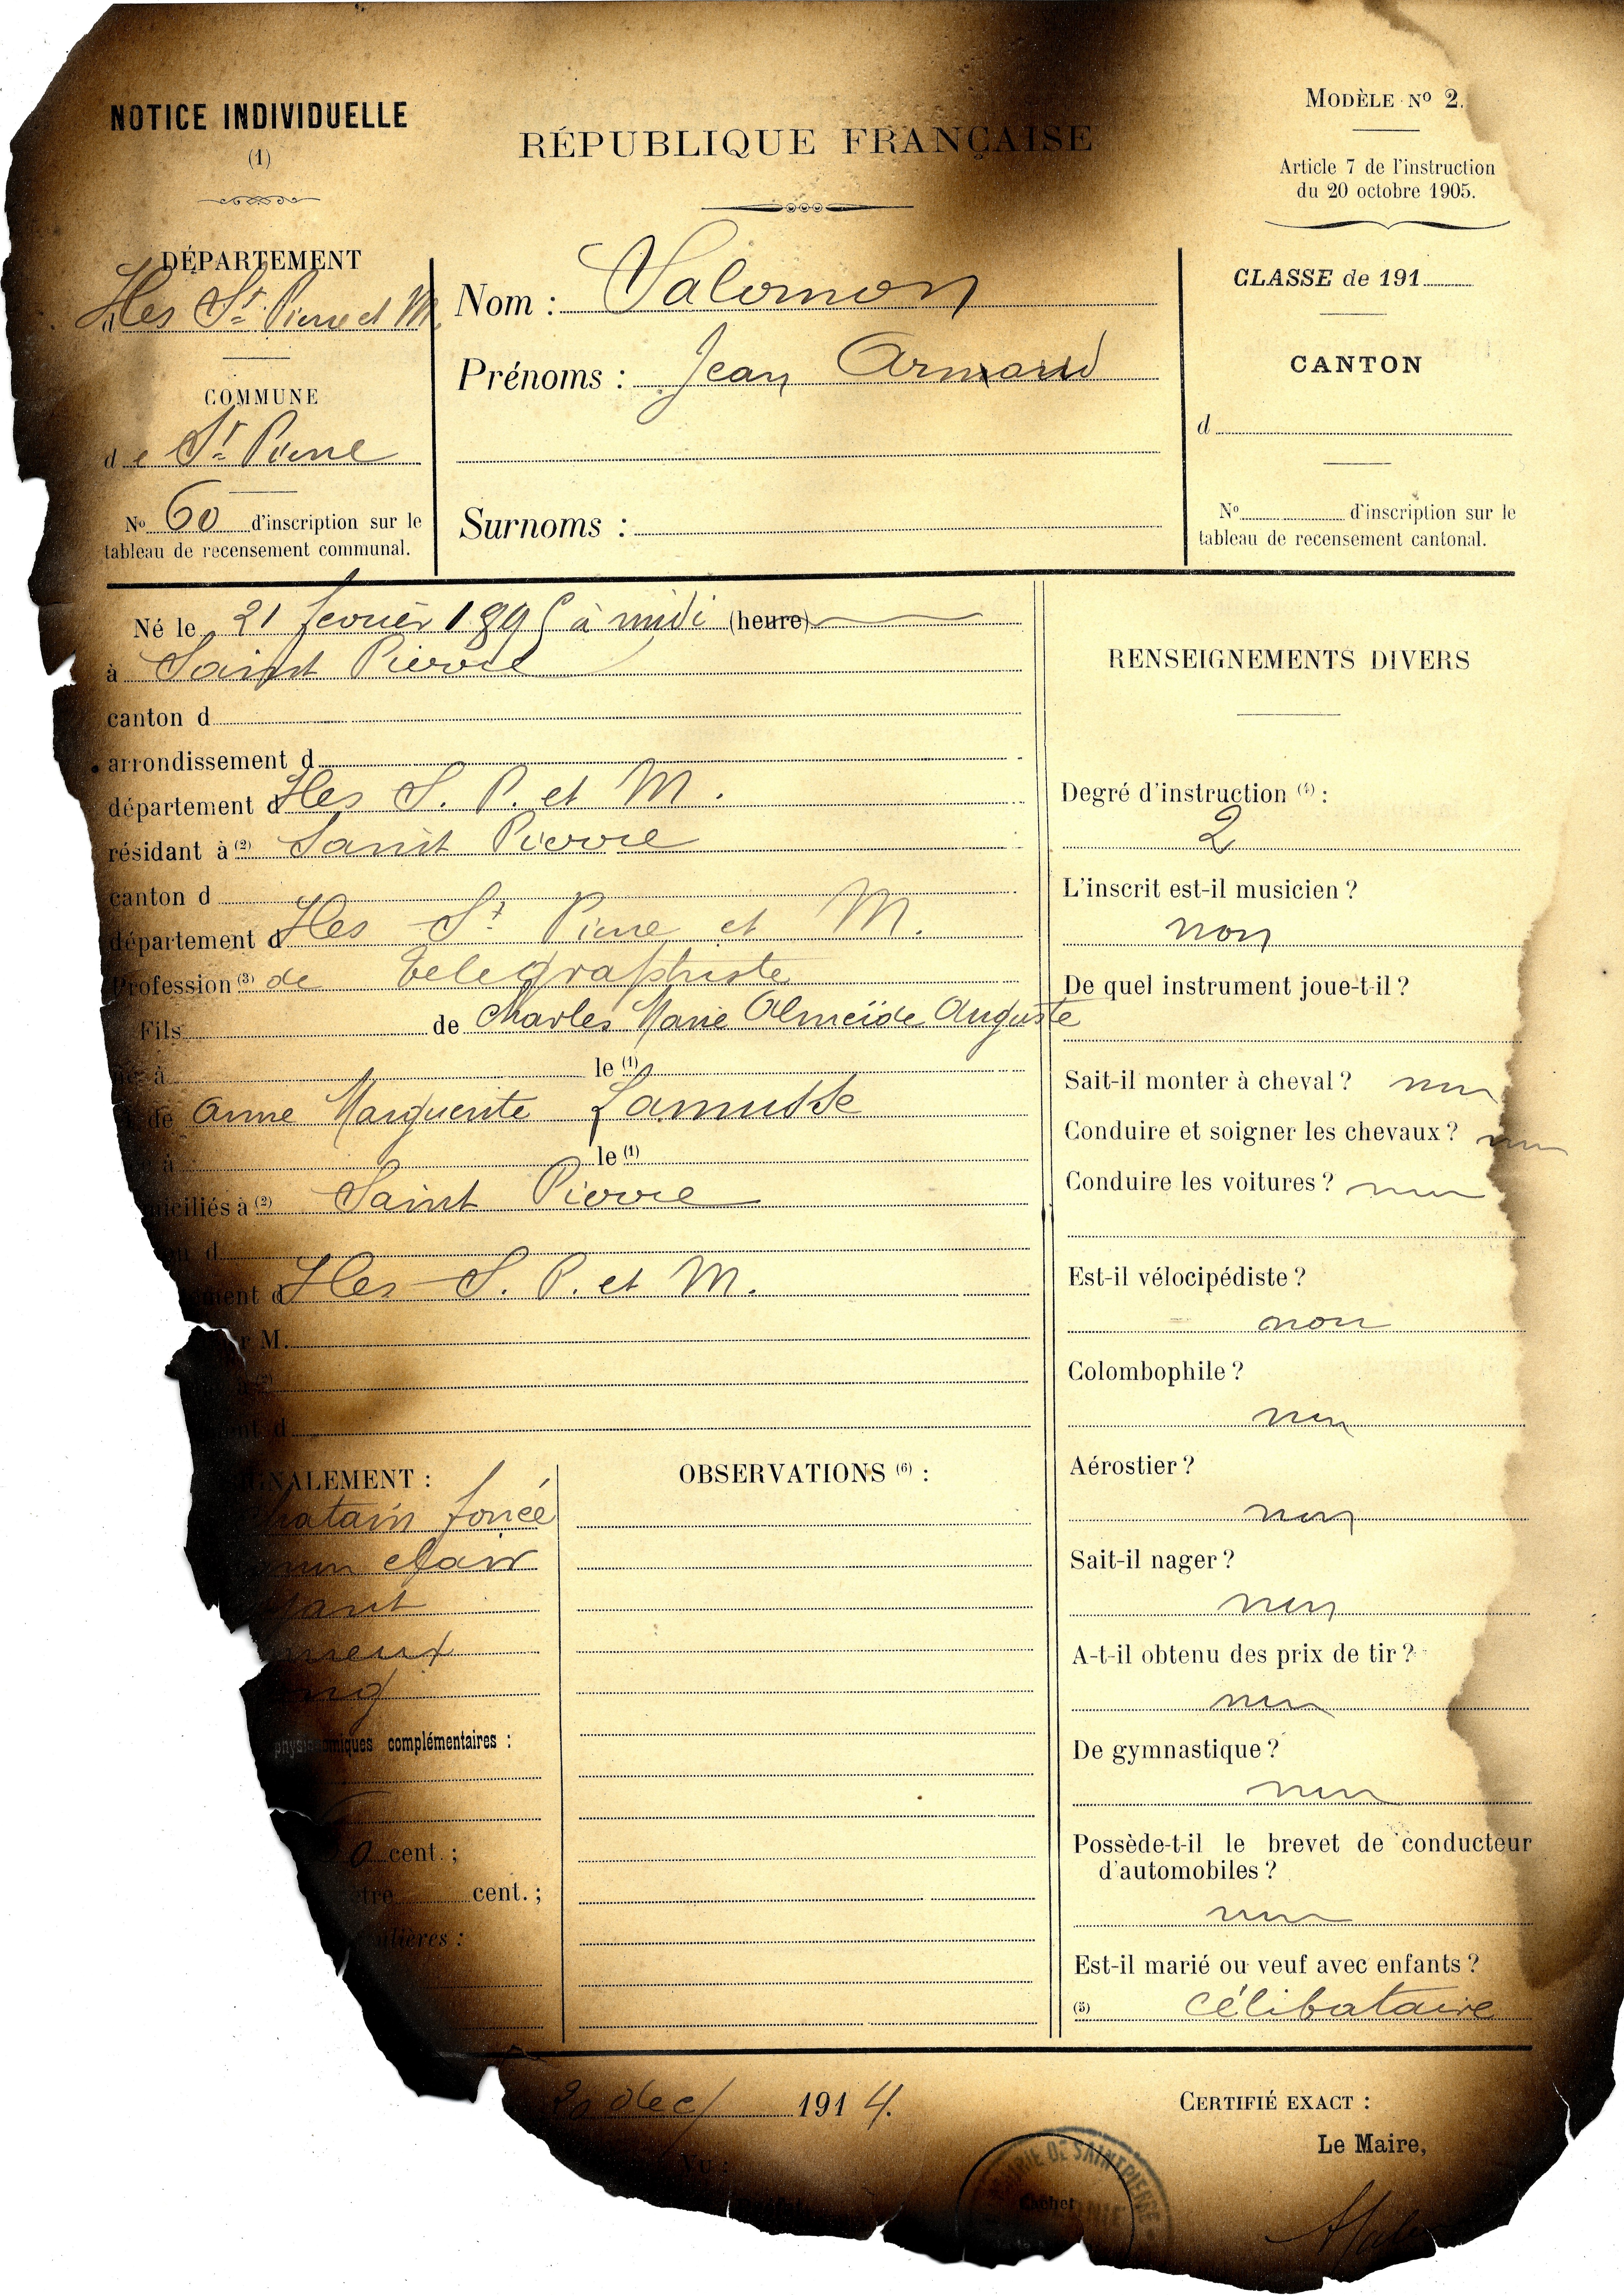 NOTICE INDIVIDUELLE
(1)
RÉPUBLIQUE FRANÇAISE
MODÈLE Nº 2.
Article 7 de l'instruction
du 20 octobre 1905.
DÉPARTEMENT
Iles St Pierre et M
COMMUNE
de St Pierre
Nº 60 d'inscription sur le
tableau de recensement communal.
Nom : Salomon
Prénoms : Jean Armand
Surnoms :
CLASSE de 191
CANTON
d
Nº d'inscription sur le
tableau de recensement cantonal.
Né le 21 fevrier 1895 à midi (heure)
à Saint Pierre
canton d
arrondissement d
département d Iles S. P. et M.
résidant à (2) Saint Pierre
canton d
département d Iles St Pierre et M.
Profession (3) de telegraphiste
Fils de Charles Marie Almeïde Auguste
né à le (1)
de Anne Marguerite Lamusse
à le (1)
domiciliés à (2) Saint Pierre
d
ment d Iles S. P. et M.
M.
(2)
d
SIGNALEMENT :
chatain foncé
clair
physionomiques complémentaires :
0 cent. ;
cent. ;
OBSERVATIONS (6) :
RENSEIGNEMENTS DIVERS
Degré d'instruction (4) :
2
L'inscrit est-il musicien ?
non
De quel instrument joue-t-il ?
Sait-il monter à cheval ? non
Conduire et soigner les chevaux ? non
Conduire les voitures ? non
Est-il vélocipédiste ?
non
Colombophile ?
non
Aérostier ?
non
Sait-il nager ?
non
A-t-il obtenu des prix de tir ?
non
De gymnastique ?
non
Possède-t-il le brevet de conducteur
d'automobiles ?
non
Est-il marié ou veuf avec enfants ?
(5) célibataire
20 dec/ 1914.
Vu :
CERTIFIÉ EXACT :
Le Maire,
MAIRIE DE SAINT PIERRE
Cachet